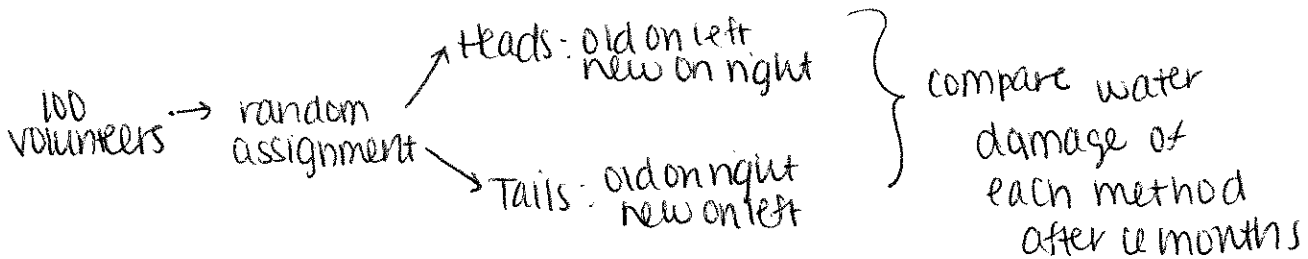 100
volunteers
random
assignment
Heads: old on left
new on right
Tails: old on right
new on left
compare water
damage of
each method
after months